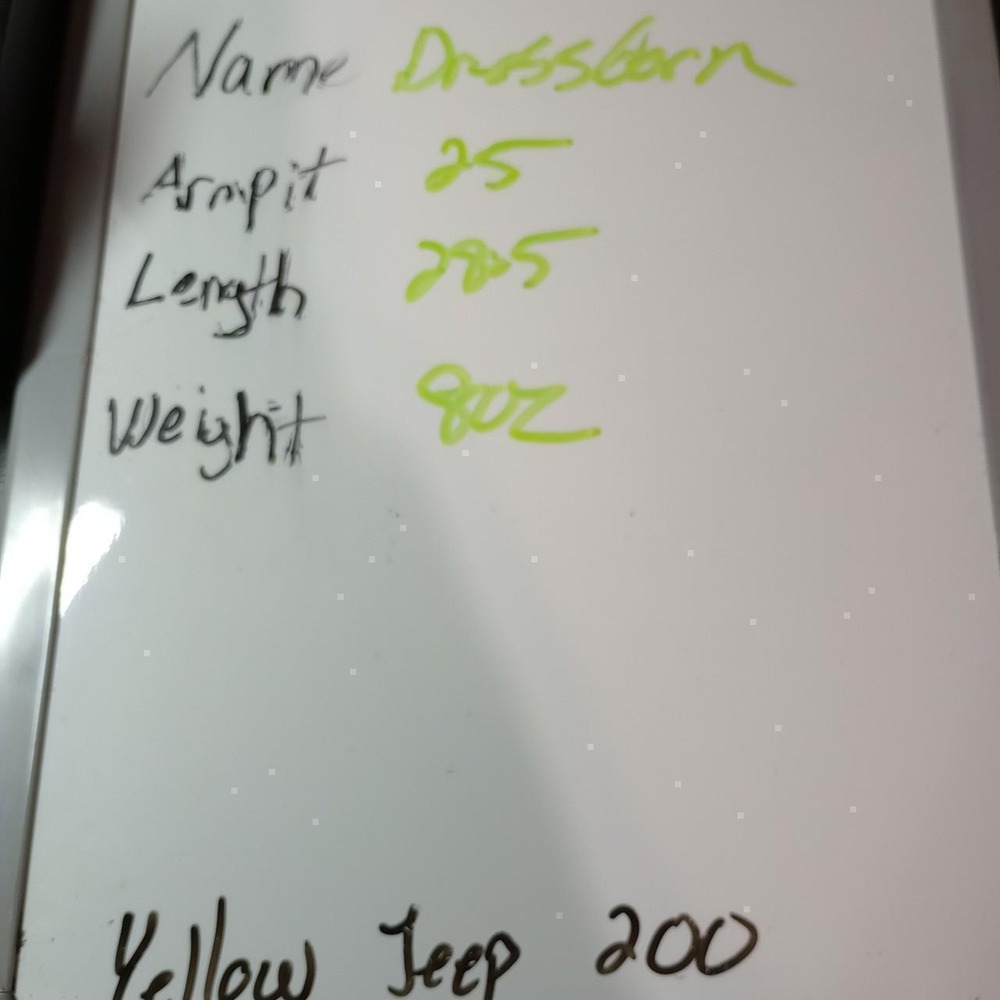 Name Dressbarn
Armpit 25
Length 28.5
Weight 8oz
Yellow Jeep 200